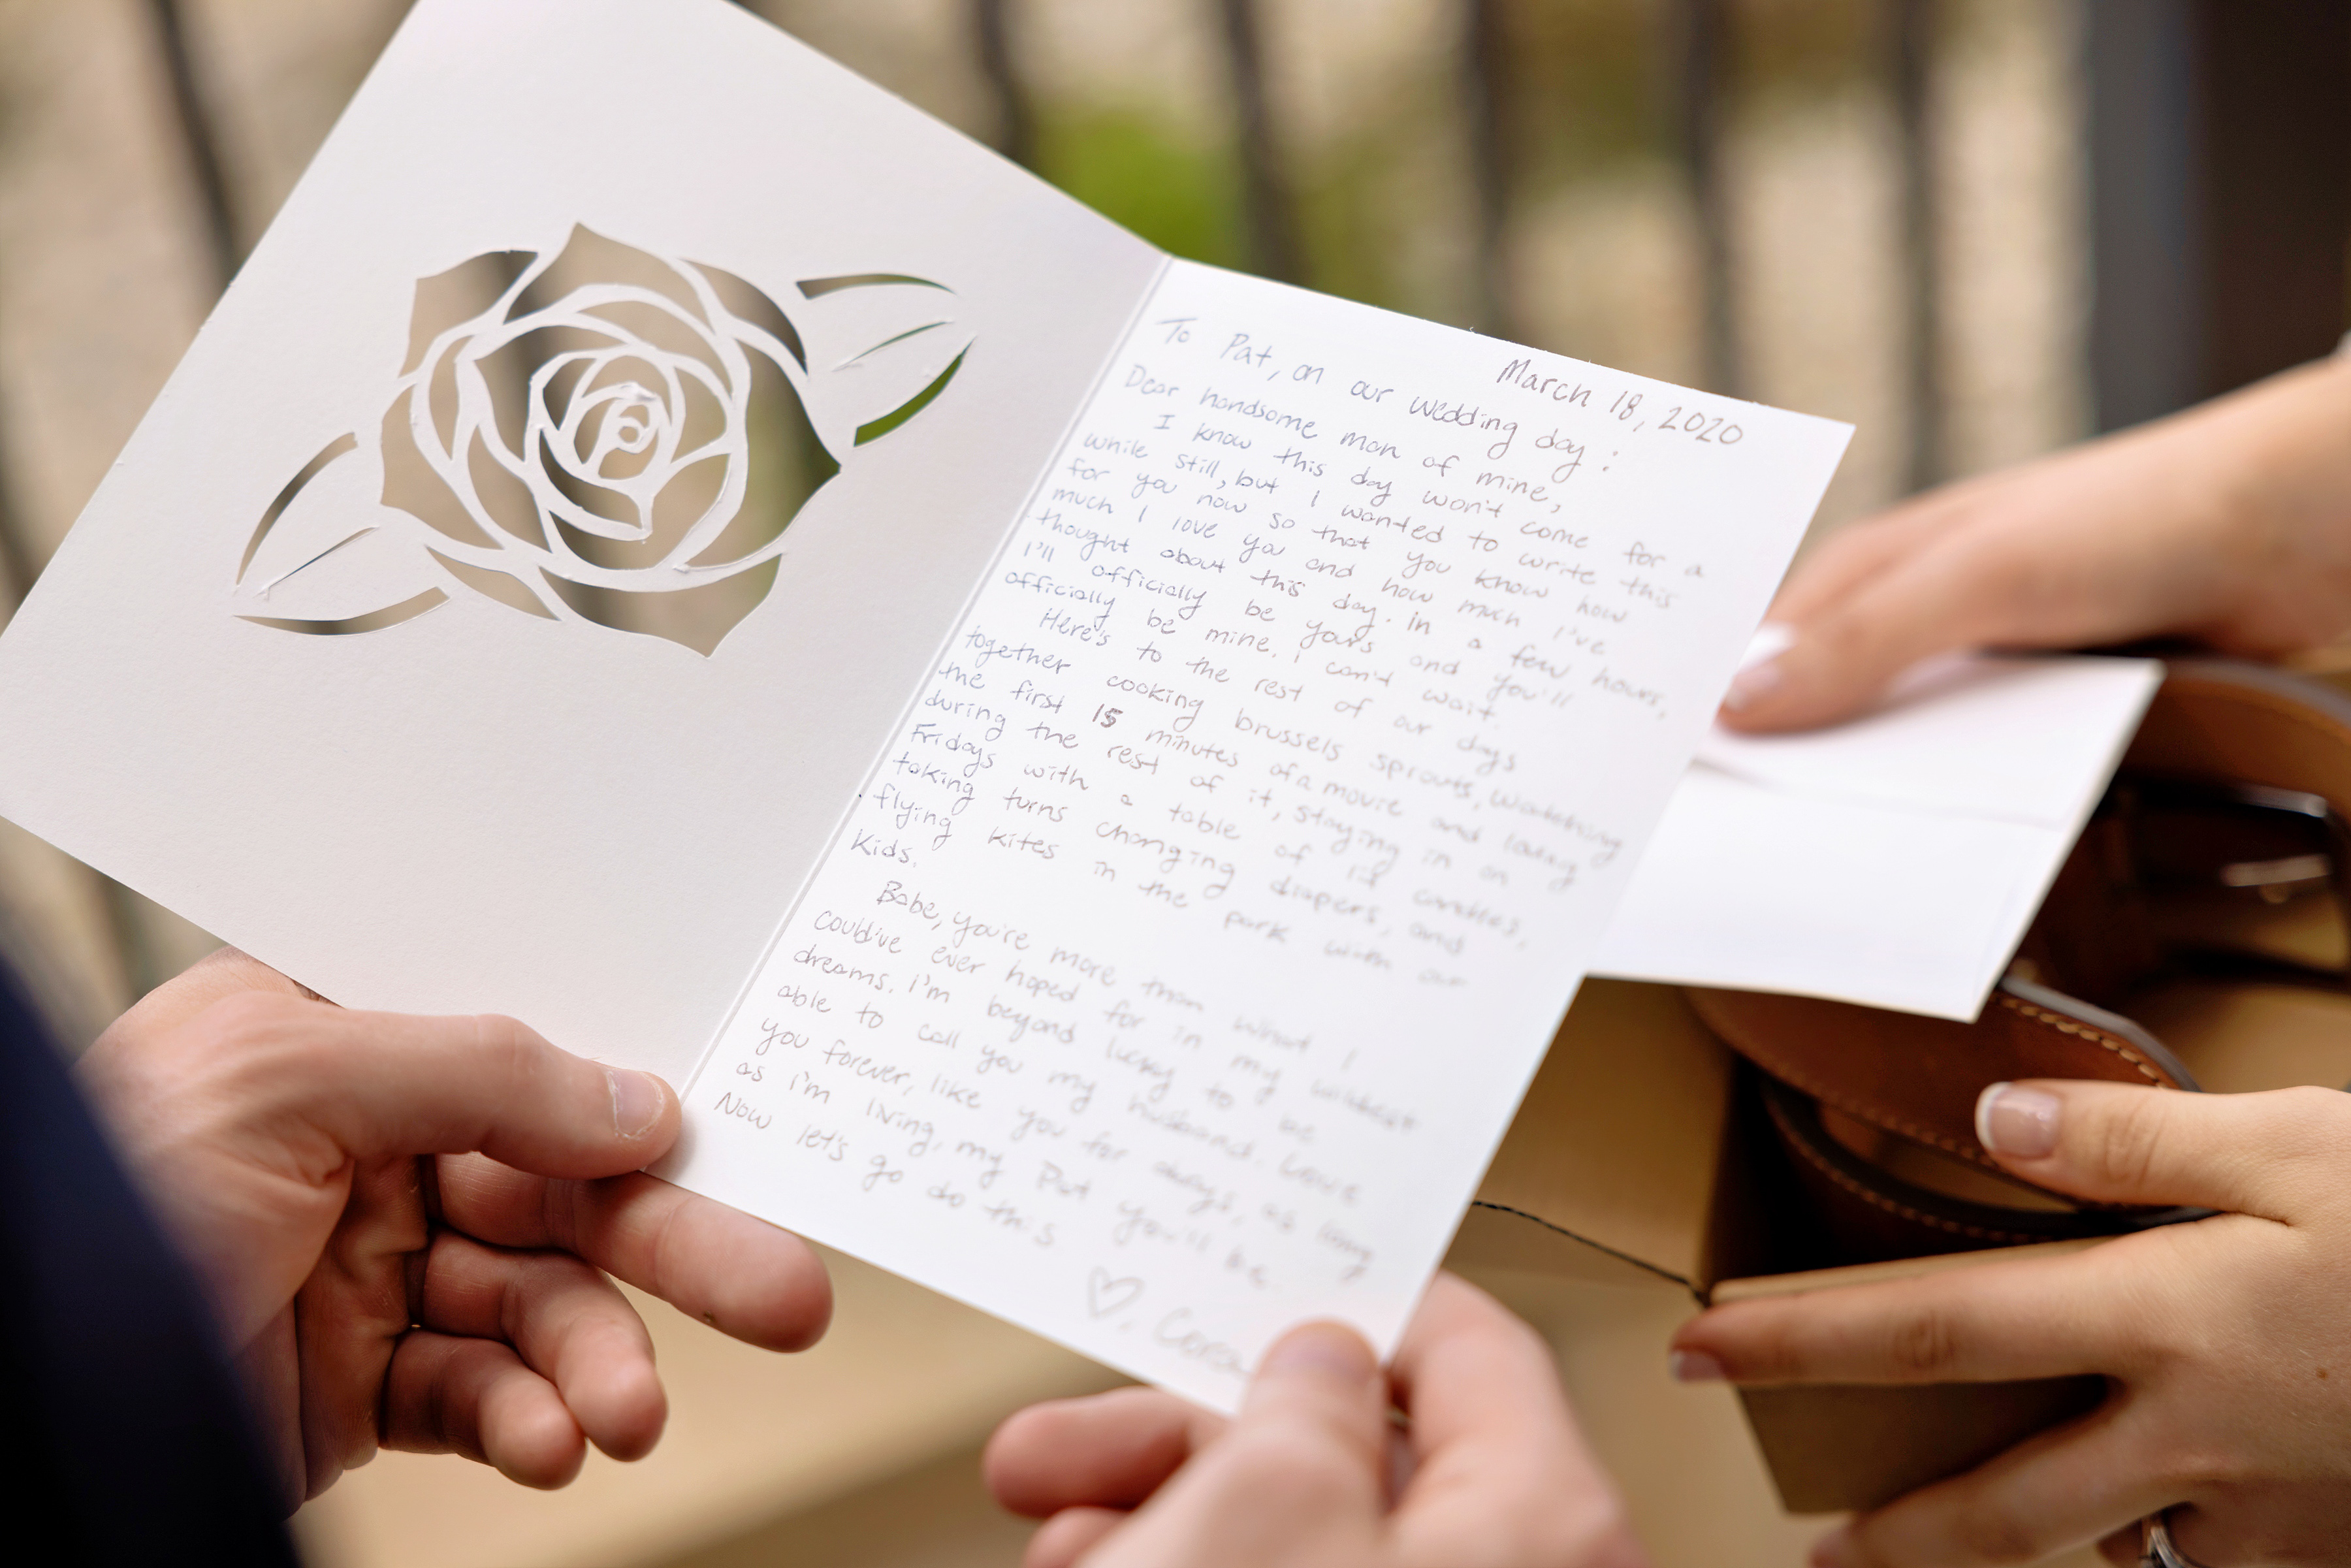 March 18, 2020
To Pat, on our wedding day:
Dear handsome man of mine,
I know this day won't come for a
while still, but I wanted to write this
for you now so that you know how
much I love you and how much I've
thought about this day. In a few hours,
I'll officially be yours and you'll
officially be mine. I can't wait.
Here's to the rest of our days
together cooking brussels sprouts, watching
the first 15 minutes of a movie and
during the rest of it, staying in on
Fridays with a table of lit candles,
taking turns changing diapers, and
flying kites in the park with our
kids.
Babe, you're more than what I
could've ever hoped for in my wildest
dreams. I'm beyond lucky to be
able to call you my husband. Love
you forever, like you for always, as long
as I'm living, my Pat you'll be.
Now let's go do this
♡,